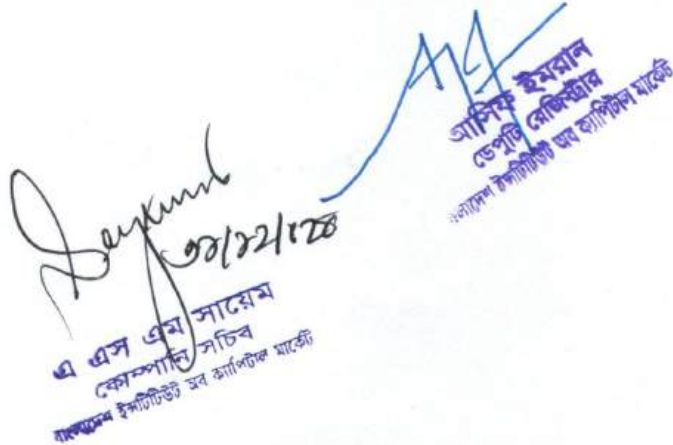 আসিফ ইমরান
ডেপুটি রেজিস্ট্রার
বাংলাদেশ ইন্সটিটিউট অব ক্যাপিটাল মার্কেট
এ এস এম সায়েম
কোম্পানি সচিব
বাংলাদেশ ইন্সটিটিউট অব ক্যাপিটাল মার্কেট